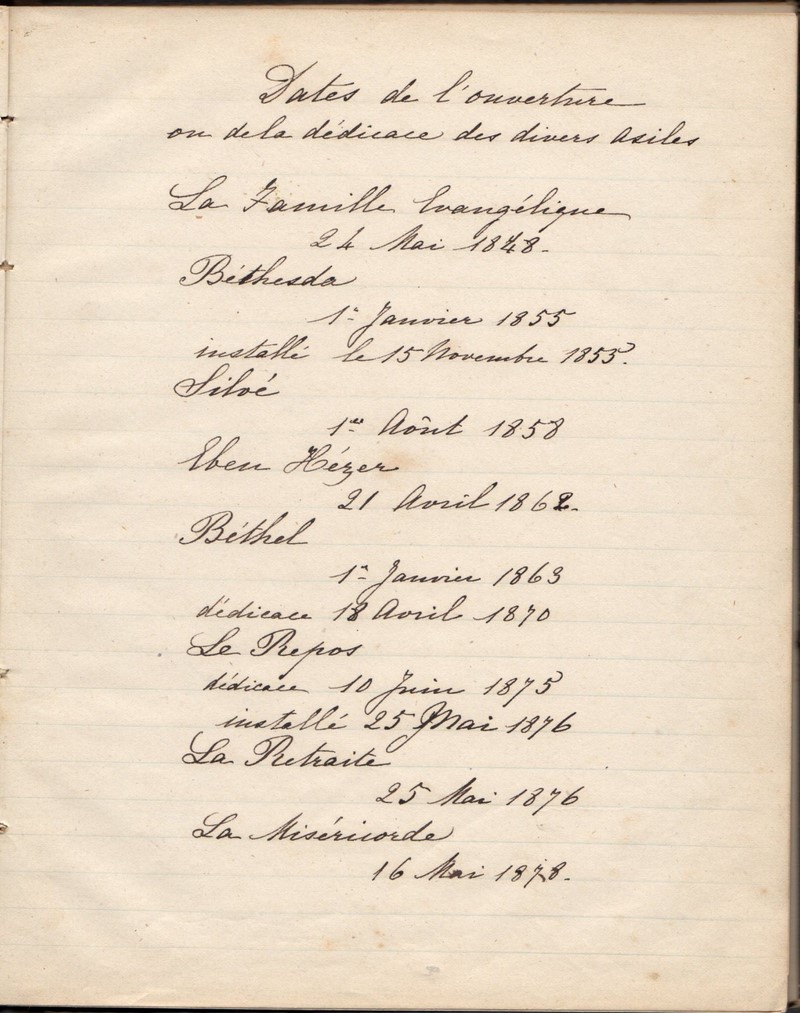 Dates de l'ouverture
ou de la dédicace des divers asiles
La Famille Evangélique
24 Mai 1848.
Béthesda
1er Janvier 1855
installé le 15 Novembre 1855.
Siloé
1er Aôut 1858
Eben Hézer
21 Avril 1862.
Béthel
1er Janvier 1863
dédicace 18 Avril 1870
Le Repos
dédicace 10 Juin 1875
installé 25 Mai 1876
La Retraite
25 Mai 1876
La Miséricorde
16 Mai 1878.